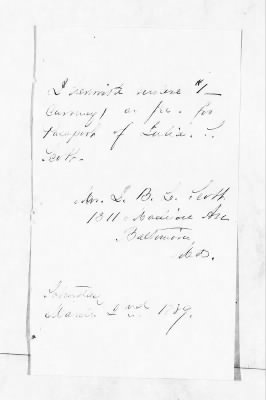 I herewith enclose $1—
Currency) as fee for
passport of Julia L.
Scott.
Mrs. L. B. L. Scott
1311 Madison Ave
Baltimore,
Md.
Saturday
March 2nd 1889.